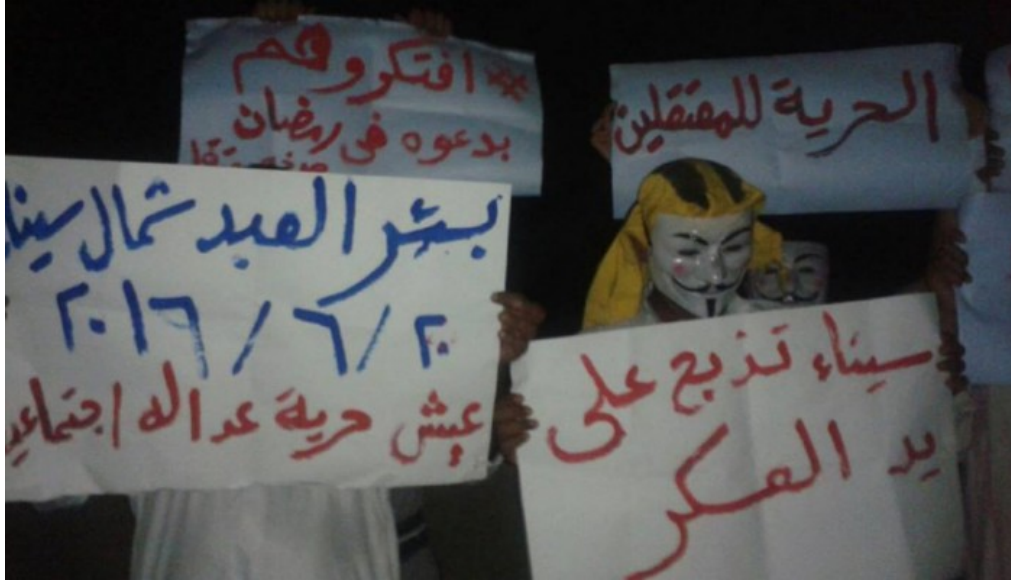 ** افتكروهم
بدعوه فى رمضان
الحرية للمعتقلين
بئر العبد شمال سينا
٢٠١٦/٦/٢٠
عيش حرية عداله اجتماعية
سيناء تذبح على
يد العسكر